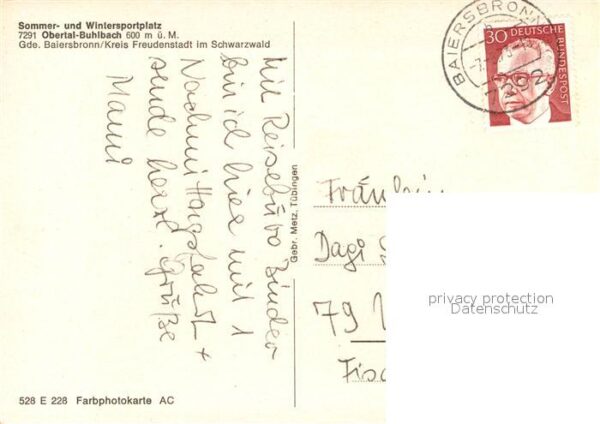 Sommer- und Wintersportplatz
7291 Obertal-Buhlbach 600 m ü. M.
Gde. Baiersbronn/Kreis Freudenstadt im Schwarzwald
Mit Reisebüro Binder
bin ich hier mit 1
Nachmittagsfahrt +
sende herzl. Grüße
Mami
Gebr. Metz, Tübingen
BAIERSBRONN
7292
30 DEUTSCHE
BUNDESPOST
Fräulein
Dagi
79
Fisc
privacy protection
Datenschutz
528 E 228 Farbphotokarte AC